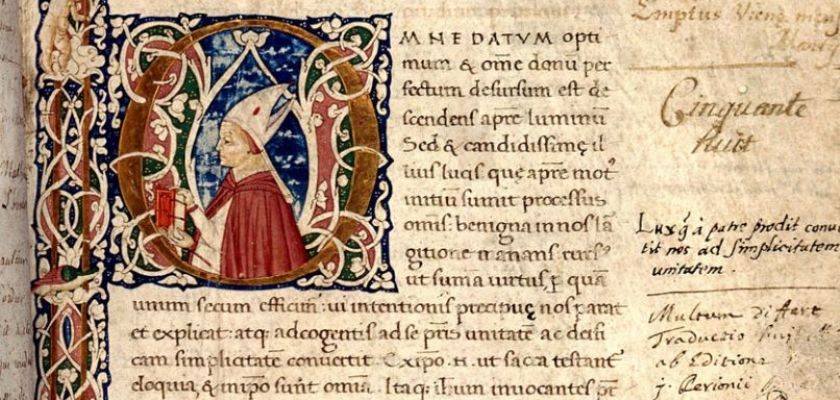 OMNE DATVM opti
mum & om̄e donū per
fectum desursum est de
scendens apr̄e luminū
Sed & candidissimę il
lius lucis quę apr̄e mot᷒
initiū sumit processus
omīs: benigna in nos la
gitione manans rursꝰ
ut suma virtus, ꝑ quā
unum secum efficim᷒: ui intentionis precipuę nos parat
et explicat: atq; ad cogentis ad se pr̄is unitatē ac deifi
cam simplicitatē convertit. Ex ip̄o .n. ut sacra testant᷒
eloquia, & in ip̄o sunt omīa. Itaq; ih̄um invocantes pr̄
Emptus
Cinquante
huit
Lux q̃ à patre prodit conver
tit nos ad simplicitatem
unitatem.
Multum differt
Traductio
ab Editione
J. Perionii